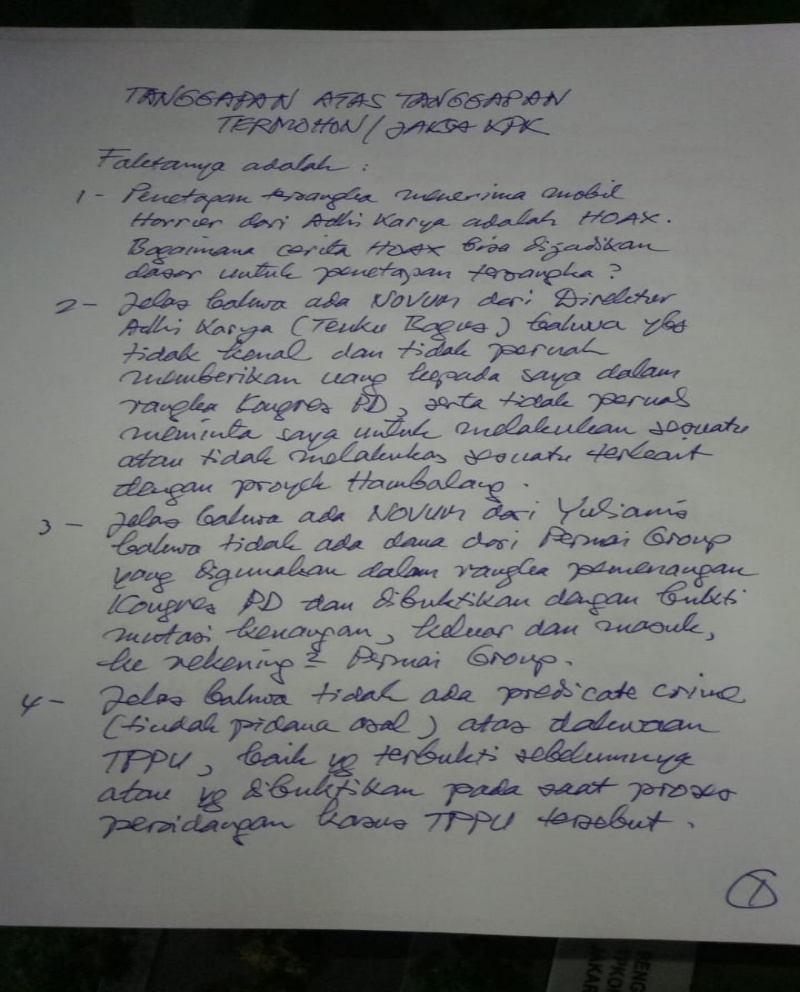 TANGGAPAN ATAS TANGGAPAN
TERMOHON / JAKSA KPK
Faktanya adalah :
1 - Penetapan tersangka menerima mobil
Harrier dari Adhi Karya adalah HOAX.
Bagaimana cerita HOAX bisa dijadikan
dasar untuk penetapan tersangka ?
2 - Jelas bahwa ada NOVUM dari Direktur
Adhi Karya (Teuku Bagus) bahwa ybs
tidak kenal dan tidak pernah
memberikan uang kepada saya dalam
rangka Kongres PD, serta tidak pernah
meminta saya untuk melakukan sesuatu
atau tidak melakukan sesuatu terkait
dengan proyek Hambalang.
3 - Jelas bahwa ada NOVUM dari Yulianis
bahwa tidak ada dana dari Permai Group
yang digunakan dalam rangka pemenangan
Kongres PD dan dibuktikan dengan bukti
mutasi keuangan, keluar dan masuk,
ke rekening2 Permai Group.
4 - Jelas bahwa tidak ada predicate crime
(tindak pidana asal) atas dakwaan
TPPU, baik yg terbukti sebelumnya
atau yg dibuktikan pada saat proses
persidangan kasus TPPU tersebut.
1